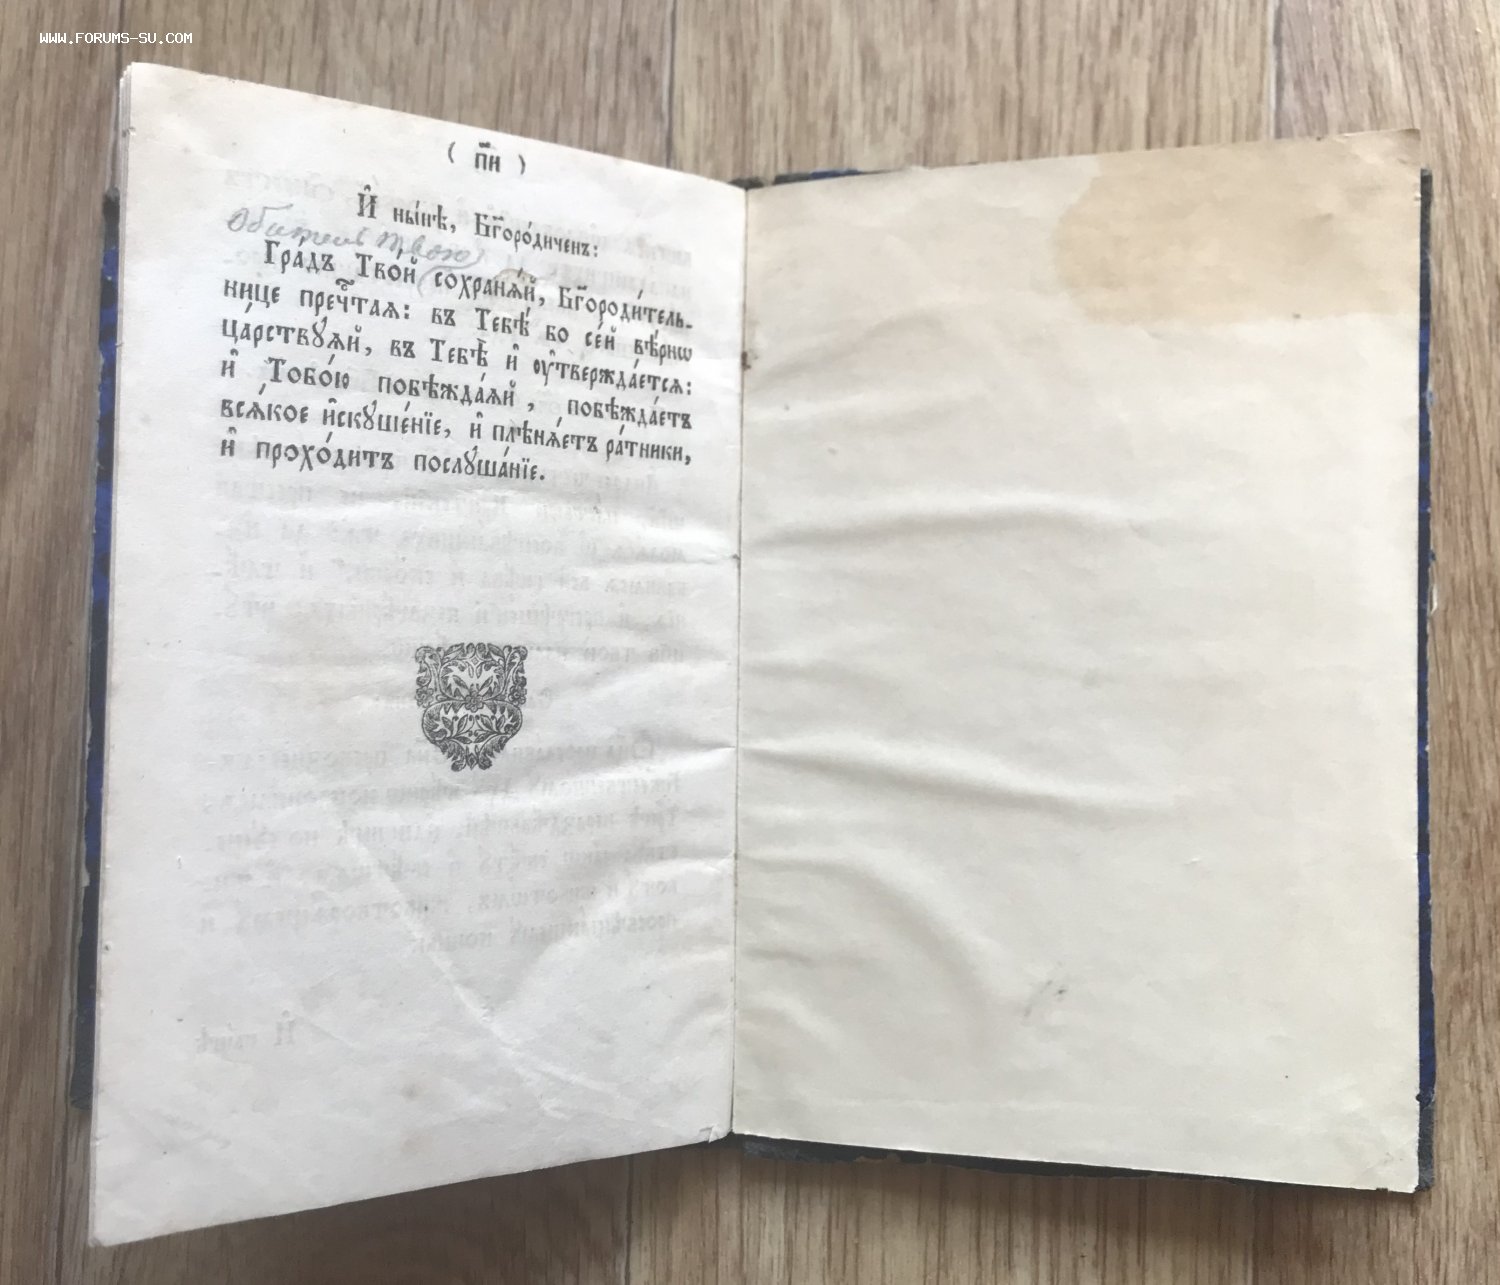 WWW.FORUMS-SU.COM
( п҃и )
И҆ ны́нѣ, Бг҃оро́диченъ:
Обитель твою
Гра́дъ Тво́й сохранѧ́й, Бг҃ороди́тель-
нице пречⷭ҇таѧ: въ Тебѣ́ бо се́й вѣ́рнѡ
ца́рствꙋѧй, въ Тебѣ̀ и҆ ᲂу҆твержда́етсѧ:
и҆ Тобо́ю побѣжда́ѧй, побѣжда́етъ
всѧ́кое и҆скꙋше́нїе, и҆ плѣнѧ́етъ ра́тники,
и҆ прохо́дитъ послꙋша́нїе.